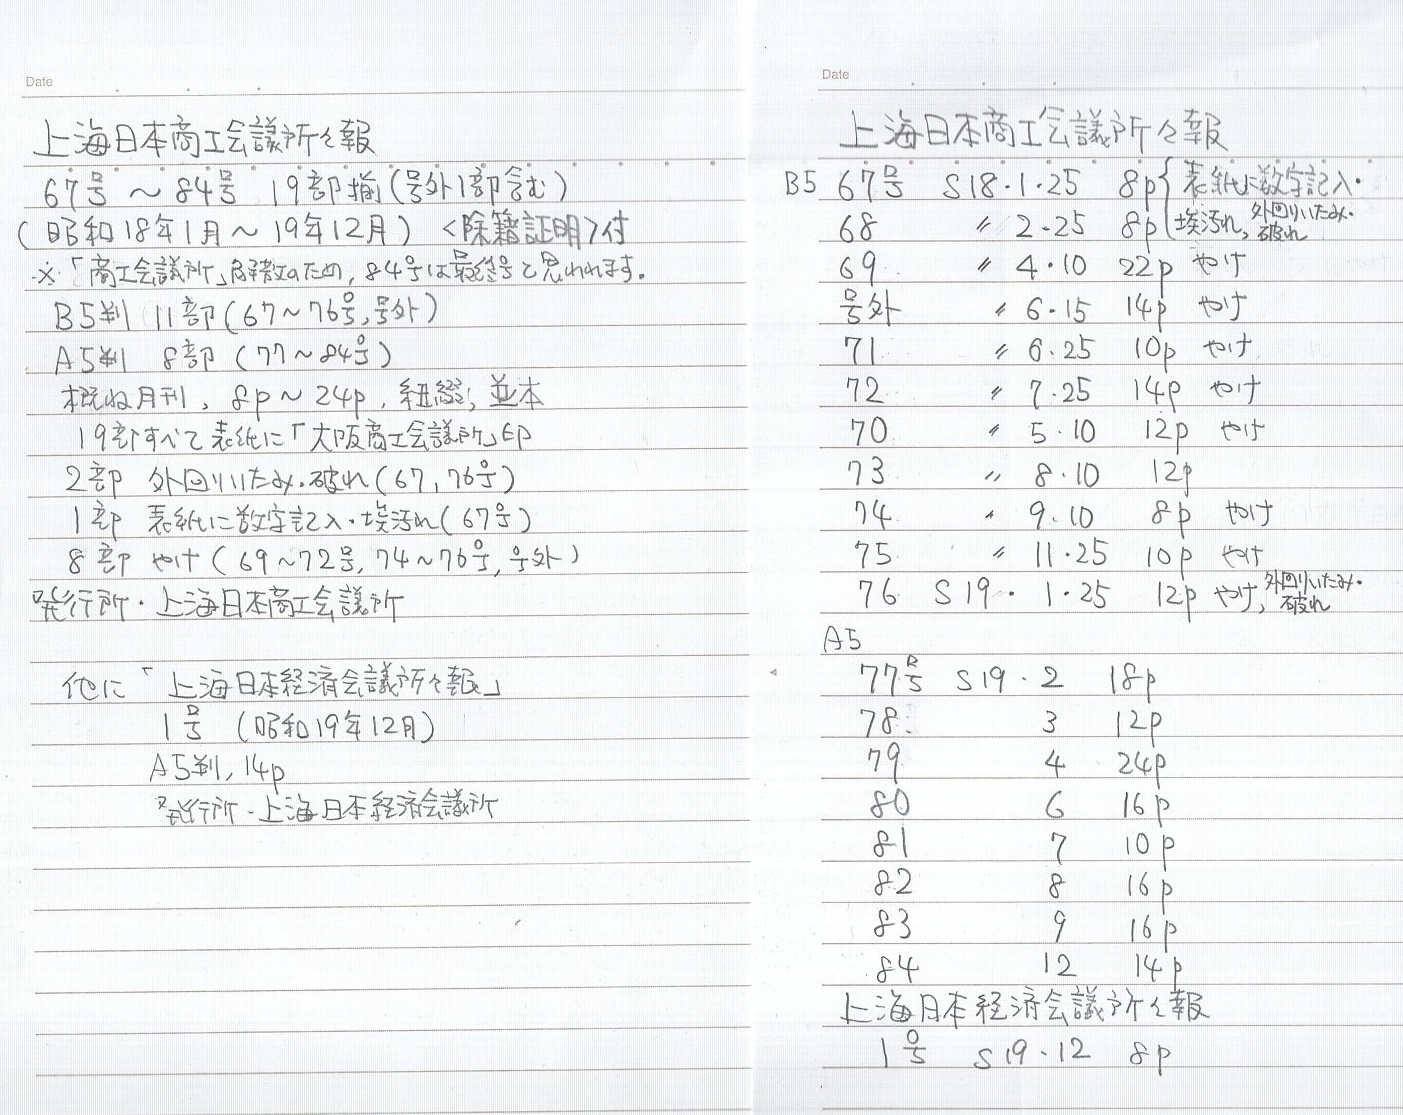 Date
上海日本商工会議所々報
67号～84号 19部揃(号外1部含む)
(昭和18年1月～19年12月) <除籍証明>付
※「商工会議所」解散のため, 84号は最終号と思われます。
B5判 11部(67～76号,号外)
A5判 8部 (77～84号)
概ね月刊, 8p～24p, 紐綴, 並本
19部すべて表紙に「大阪商工会議所」印
2部 外回りいたみ・破れ(67,76号)
1部 表紙に数字記入・埃汚れ(67号)
8部 やけ(69～72号, 74～76号, 号外)
発行所・上海日本商工会議所
他に「上海日本経済会議所々報」
1号 (昭和19年12月)
A5判, 14p
発行所・上海日本経済会議所
Date
上海日本商工会議所々報
B5 67号 S18・1・25 8p 表紙に数字記入・
68 〃 2・25 8p 埃汚れ, 外回りいたみ・破れ
69 〃 4・10 22p やけ
号外 〃 6・15 14p やけ
71 〃 6・25 10p やけ
72 〃 7・25 14p やけ
70 〃 5・10 12p やけ
73 〃 8・10 12p
74 〃 9・10 8p やけ
75 〃 11・25 10p やけ
76 S19・1・25 12p やけ, 外回りいたみ・破れ
A5
77号 S19・2 18p
78 3 12p
79 4 24p
80 6 16p
81 7 10p
82 8 16p
83 9 16p
84 12 14p
上海日本経済会議所々報
1号 S19・12 8p